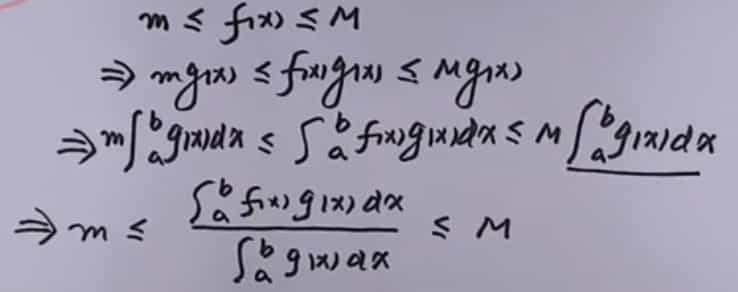 m ≤ f(x) ≤ M
⇒ mg(x) ≤ f(x)g(x) ≤ Mg(x)
⇒ m∫_a^b g(x)dx ≤ ∫_a^b f(x)g(x)dx ≤ M∫_a^b g(x)dx
⇒ m ≤ \frac{∫_a^b f(x)g(x)dx}{∫_a^b g(x)dx} ≤ M